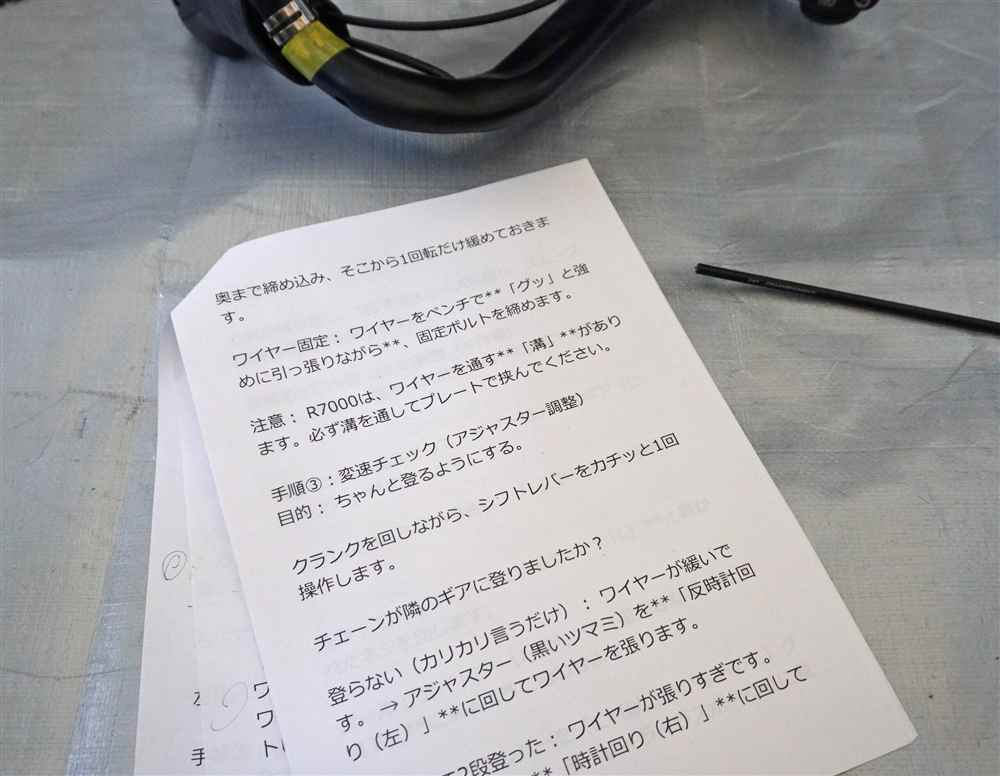 奥まで締め込み、そこから1回転だけ緩めておきま
す。
ワイヤー固定： ワイヤーをペンチで**「グッ」と強
めに引っ張りながら**、固定ボルトを締めます。
注意： R7000は、ワイヤーを通す**「溝」**があり
ます。必ず溝を通してプレートで挟んでください。
手順③：変速チェック（アジャスター調整）
目的： ちゃんと登るようにする。
クランクを回しながら、シフトレバーをカチッと1回
操作します。
チェーンが隣のギアに登りましたか？
登らない（カリカリ言うだけ）： ワイヤーが緩いで
す。 → アジャスター（黒いツマミ）を**「反時計回
り（左）」**に回してワイヤーを張ります。
2段登った： ワイヤーが張りすぎです。
**「時計回り（右）」**に回して
ワ
ワ
ト
手